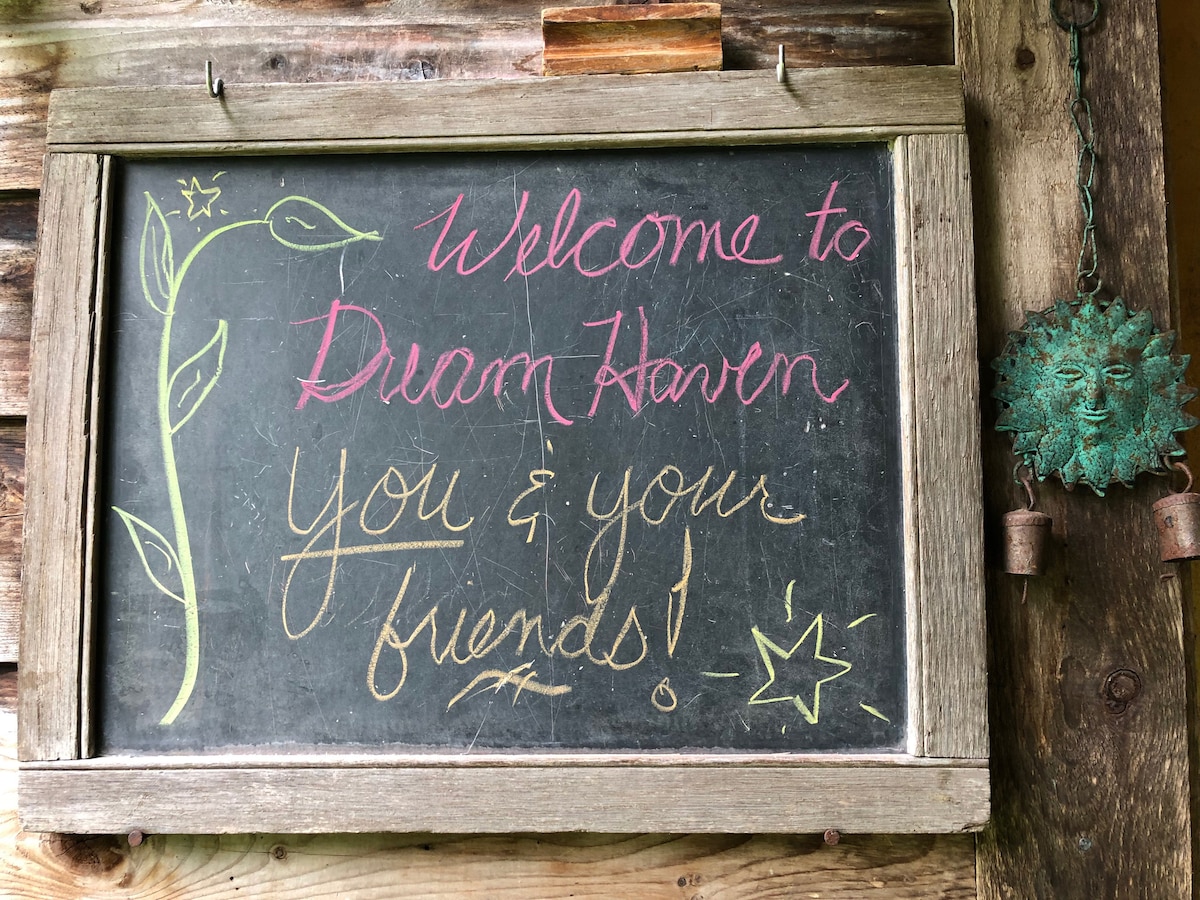 Welcome to
Dream Haven
You & your
friends!